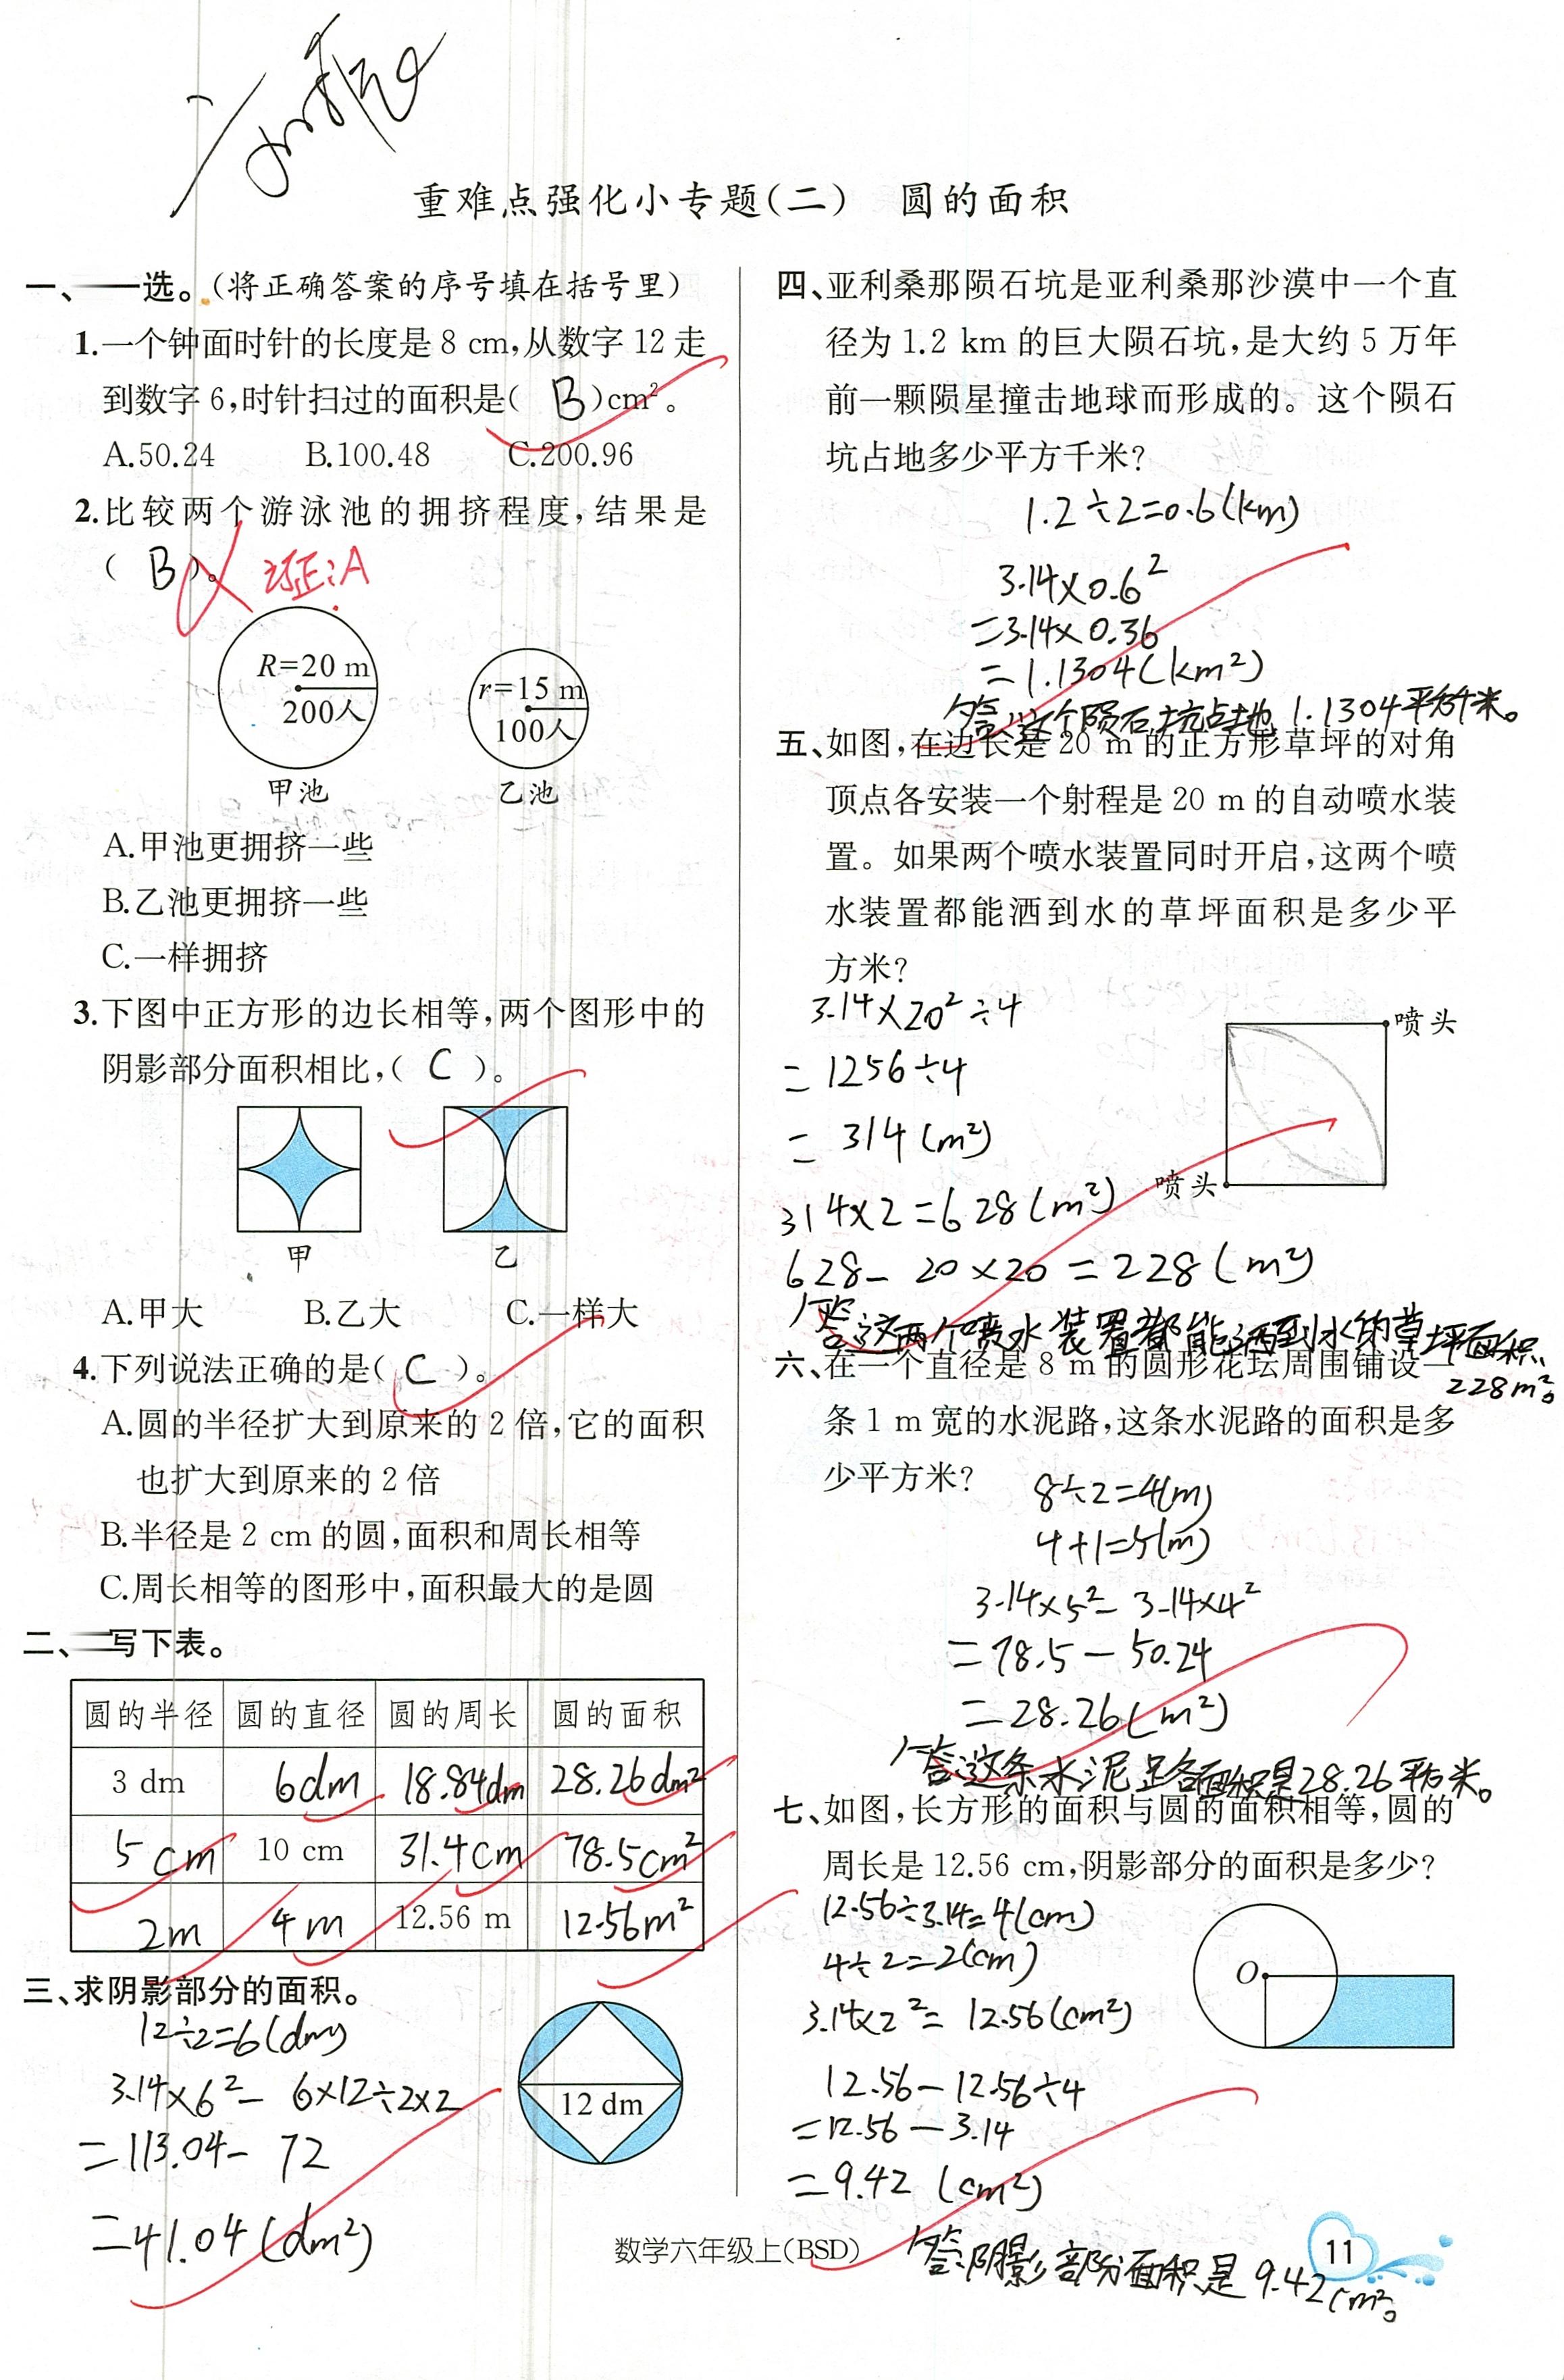 重难点强化小专题(二) 圆的面积
一、选。(将正确答案的序号填在括号里)
1.一个钟面时针的长度是8 cm,从数字12走
到数字6,时针扫过的面积是( B )cm²。
A.50.24 B.100.48 C.200.96
2.比较两个游泳池的拥挤程度,结果是
( B )。 订正:A
R=20 m
200人
甲池
r=15 m
100人
乙池
A.甲池更拥挤一些
B.乙池更拥挤一些
C.一样拥挤
3.下图中正方形的边长相等,两个图形中的
阴影部分面积相比,( C )。
甲 乙
A.甲大 B.乙大 C.一样大
4.下列说法正确的是( C )。
A.圆的半径扩大到原来的2倍,它的面积
也扩大到原来的2倍
B.半径是2 cm的圆,面积和周长相等
C.周长相等的图形中,面积最大的是圆
二、写下表。
圆的半径 圆的直径 圆的周长 圆的面积
3 dm 6dm 18.84dm 28.26dm²
5cm 10 cm 31.4cm 78.5cm²
2m 4m 12.56 m 12.56m²
三、求阴影部分的面积。
12÷2=6(dm)
3.14×6²-6×12÷2×2
=113.04-72
=41.04(dm²)
12 dm
四、亚利桑那陨石坑是亚利桑那沙漠中一个直
径为1.2 km的巨大陨石坑,是大约5万年
前一颗陨星撞击地球而形成的。这个陨石
坑占地多少平方千米?
1.2÷2=0.6(km)
3.14×0.6²
=3.14×0.36
=1.1304(km²)
答:这个陨石坑占地1.1304平方千米。
五、如图,在边长是20 m的正方形草坪的对角
顶点各安装一个射程是20 m的自动喷水装
置。如果两个喷水装置同时开启,这两个喷
水装置都能洒到水的草坪面积是多少平
方米?
3.14×20²÷4
=1256÷4
=314(m²)
314×2=628(m²)
628-20×20=228(m²)
答:这两个喷水装置都能洒到水的草坪面积
228m²。
喷头
喷头
六、在一个直径是8 m的圆形花坛周围铺设一
条1 m宽的水泥路,这条水泥路的面积是多
少平方米?
8÷2=4(m)
4+1=5(m)
3.14×5²-3.14×4²
=78.5-50.24
=28.26(m²)
答:这条水泥路面积是28.26平方米。
七、如图,长方形的面积与圆的面积相等,圆的
周长是12.56 cm,阴影部分的面积是多少?
12.56÷3.14=4(cm)
4÷2=2(cm)
3.14×2²=12.56(cm²)
12.56-12.56÷4
=12.56-3.14
=9.42(cm²)
答:阴影部分面积是9.42cm²。
O
数学六年级上(BSD)
11